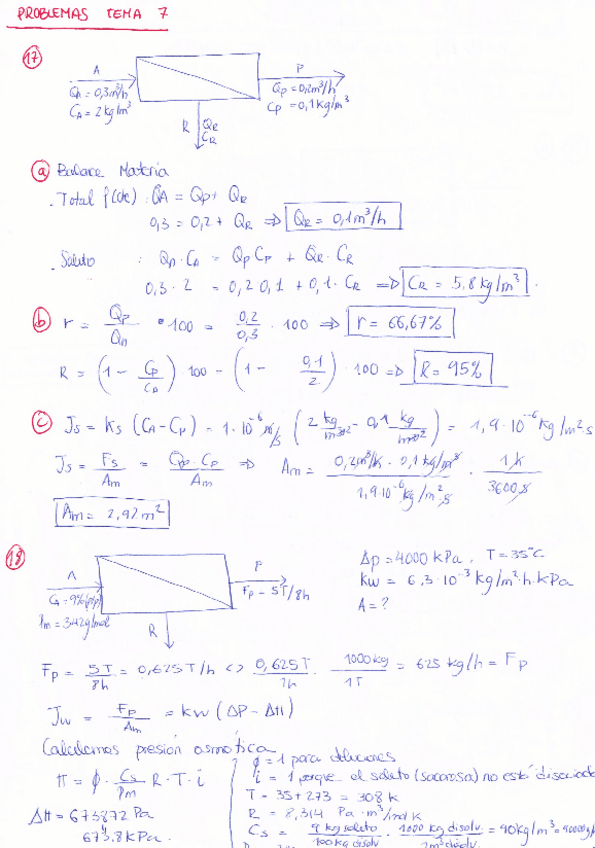 PROBLEMAS TEMA 7
17
A
QA = 0,3m³/h
CA = 2kg/m³
P
Qp = 0,2m³/h
Cp = 0,1kg/m³
R
QR
CR
a Balance Materia
. Total QA = Qp + QR
0,3 = 0,2 + QR => QR = 0,1m³/h
. Soluto : QA · CA = Qp Cp + QR · CR
0,3 · 2 = 0,2 0,1 + 0,1 · CR => CR = 5,8 kg/m³.
b r = Qp/QA · 100 = 0,2/0,3 · 100 => r = 66,67%
R = (1 - Cp/CA) · 100 - (1 - 0,1/2) · 100 => R = 95%
c Js = Ks (CA - Cp) = 1·10⁻⁶ m/s (2 kg/m³ - 0,1 kg/m³) = 1,9·10⁻⁶ kg/m²·s
Js = Fs/Am = Qp · Cp/Am => Am = 0,2m³/h · 0,1kg/m³/1,9·10⁻⁶kg/m²·s · 1h/3600s
Am = 2,92 m²
18
A
CA = 9% (p/p)
Pm = 342g/mol
P
Fp - 5T/8h
R
Δp = 4000 kPa, T = 35°C
Kw = 6,3·10⁻³ kg/m²·h·kPa
A = ?
Fp = 5T/8h = 0,625T/h <> 0,625T/1h · 1000kg/1T = 625 kg/h = Fp
Jw = Fp/Am = Kw (ΔP - Δπ)
Calculamos presión osmótica
π = ϕ · Cs/Pm R · T · i
Δπ = 673872 Pa
673.8kPa.
ϕ = 1 para
i = 1 porque el soluto (sacarosa) no está
T = 35 + 273 = 308 k
R = 8,314 Pa·m³/mol K
Cs = 9 kg soluto/100 kg disolv. · 1000 kg disolv./1m³ disolv. = 90kg/m³ =